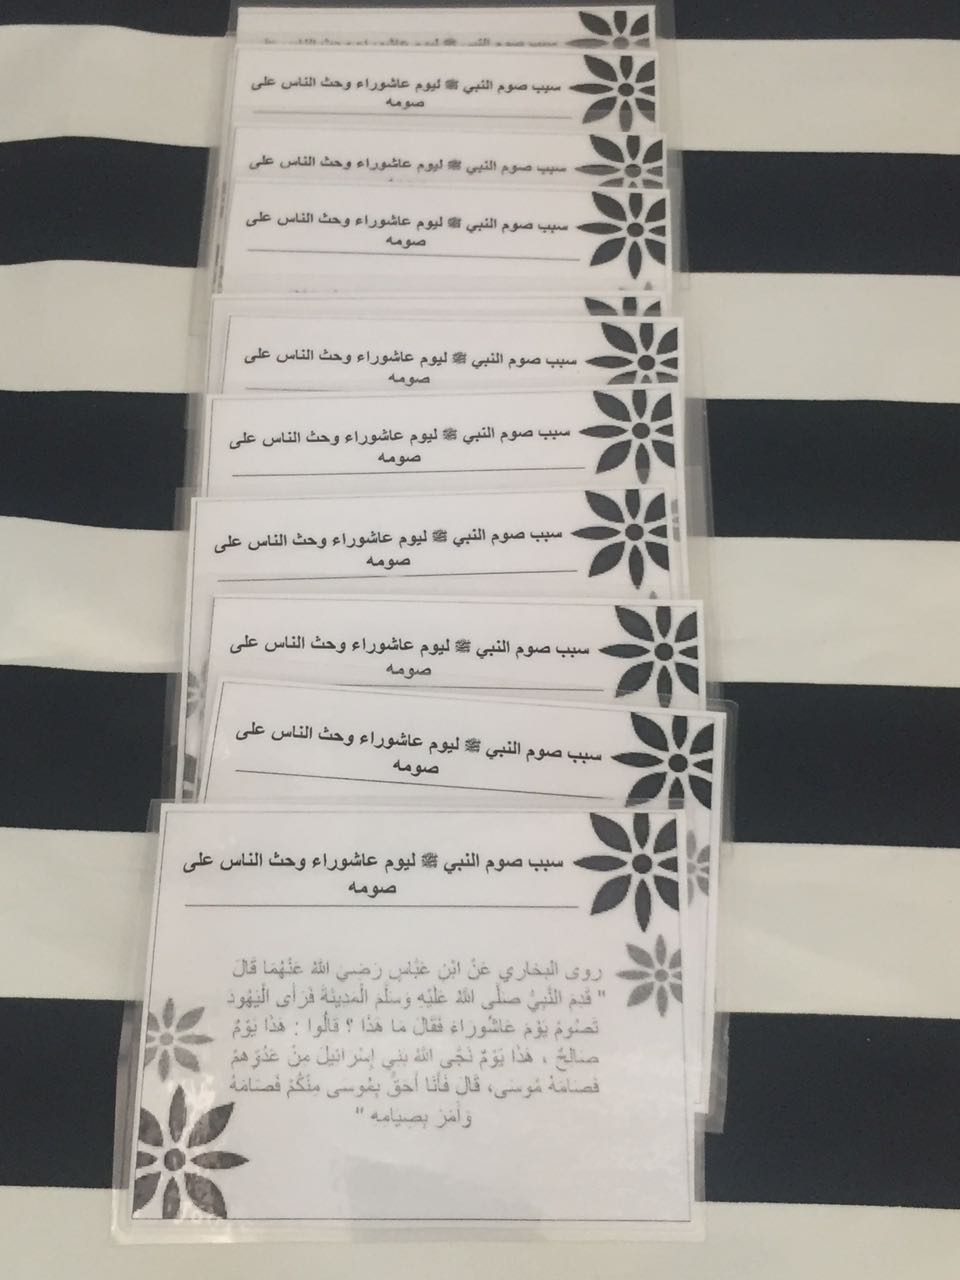 سبب صوم النبي ﷺ ليوم عاشوراء وحث الناس على
سبب صوم النبي ﷺ ليوم عاشوراء وحث الناس على
صومه
سبب صوم النبي ﷺ ليوم عاشوراء وحث الناس على
سبب صوم النبي ﷺ ليوم عاشوراء وحث الناس على
صومه
سبب صوم النبي ﷺ ليوم عاشوراء وحث الناس على
صومه
سبب صوم النبي ﷺ ليوم عاشوراء وحث الناس على
صومه
سبب صوم النبي ﷺ ليوم عاشوراء وحث الناس على
صومه
سبب صوم النبي ﷺ ليوم عاشوراء وحث الناس على
صومه
سبب صوم النبي ﷺ ليوم عاشوراء وحث الناس على
صومه
سبب صوم النبي ﷺ ليوم عاشوراء وحث الناس على
صومه
روى البخاري عَنْ ابْنِ عَبَّاسٍ رَضِيَ اللَّهُ عَنْهُمَا قَالَ
" قَدِمَ النَّبِيُّ صَلَّى اللَّهُ عَلَيْهِ وَسَلَّمَ الْمَدِينَةَ فَرَأَى الْيَهُودَ
تَصُومُ يَوْمَ عَاشُورَاءَ فَقَالَ مَا هَذَا ؟ قَالُوا : هَذَا يَوْمٌ
صَالِحٌ ، هَذَا يَوْمٌ نَجَّى اللَّهُ بَنِي إِسْرَائِيلَ مِنْ عَدُوِّهِمْ
فَصَامَهُ مُوسَى، قَالَ فَأَنَا أَحَقُّ بِمُوسَى مِنْكُمْ فَصَامَهُ
وَأَمَرَ بِصِيَامِهِ "